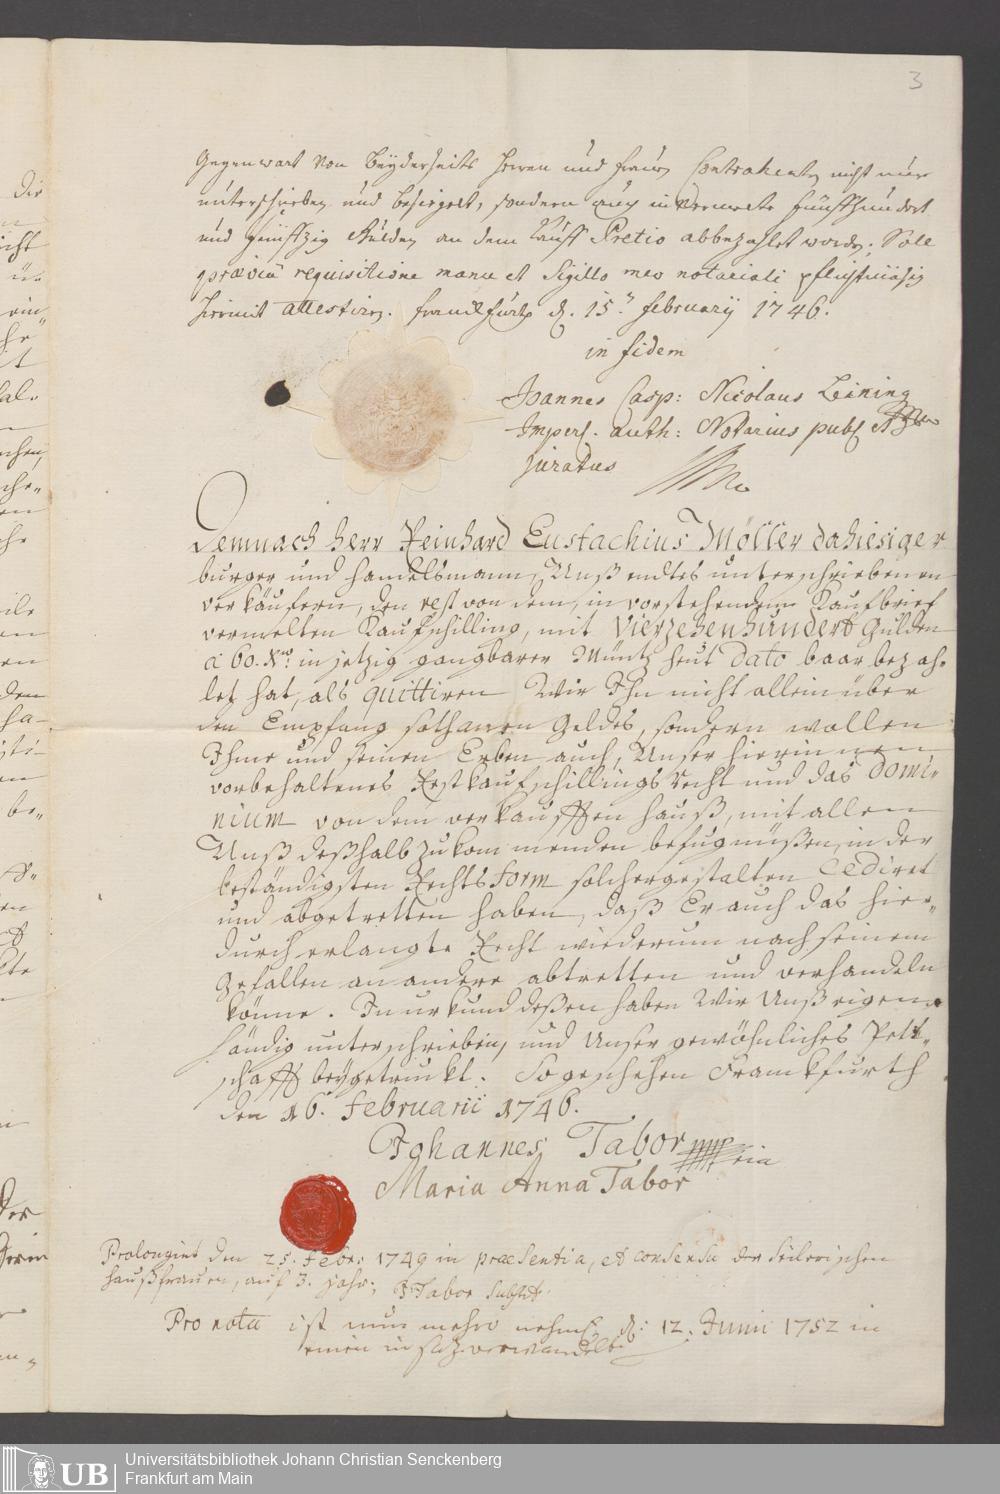 3
Gegenwart von beyderseits Herren und Frauen Contrahenten nicht nur
unterschrieben und besiegelt, sondern auch in vermelte fünffhundert
und fünffzig Gulden an dem Kauff Pretio abbezahlet worden. Solc
præviâ requisitione manu et Sigillo meo notariali pflichtmäsig
hiermit attestire. Franckfurth d. 15.n February 1746.
in fidem
Joannes Casp: Nicolaus Leining
Imperl. auth: Notarius publ et
juratus
Demnach herr Reinhard Eustachius Möller dahiesiger
burger und handelsmann, Unß endtes unterschriebenen
verkäufern, den rest von dem, in vorstehendem Kaufbrief
vermelten Kaufschilling, mit Vierzehenhundert Gulden
à 60. Xer. in jetzig gangbarer Müntz heut Dato baar bezah-
let hat, als quittiren Wir Ihn nicht allein über
den Empfang sothanen Geldes, sondern wollen
Ihme und seinen Erben auch, Unser hierinnen
vorbehaltenes Restkaufschillings recht und das Domi-
nium von dem verkaufften hauß, mit allen
Unß deßhalb zukommenden befugnüßen, in der
beständigsten Rechts form solchergestalten cediret
und abgetretten haben, daß Er auch das hier-
durch erlangte Recht wiederum nach seinem
Gefallen an andere abtretten und verhandeln
könne. In urkund deßen haben Wir Unß eigen-
händig unterschrieben, und Unser gewöhnliches Pett-
schafft beygetruckt. So geschehen Franckfurth
den 16. Februarii 1746.
Johannes Tabor
Maria Anna Tabor
Prolongirt den 25. Febr: 1749 in præsentia, et consensu der
haußfrauen, auf 3. Jahr; J Tabor
Pro nota ist nun mehro d: 12. Junii 1752 in
einen verwandelt
Universitätsbibliothek Johann Christian Senckenberg
Frankfurt am Main
UB